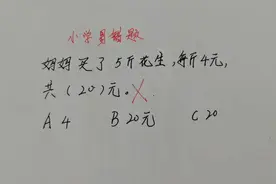 小学易错题
妈妈买了5斤花生,每斤4元,
共(20)元。
A 4 B 20元 C 20